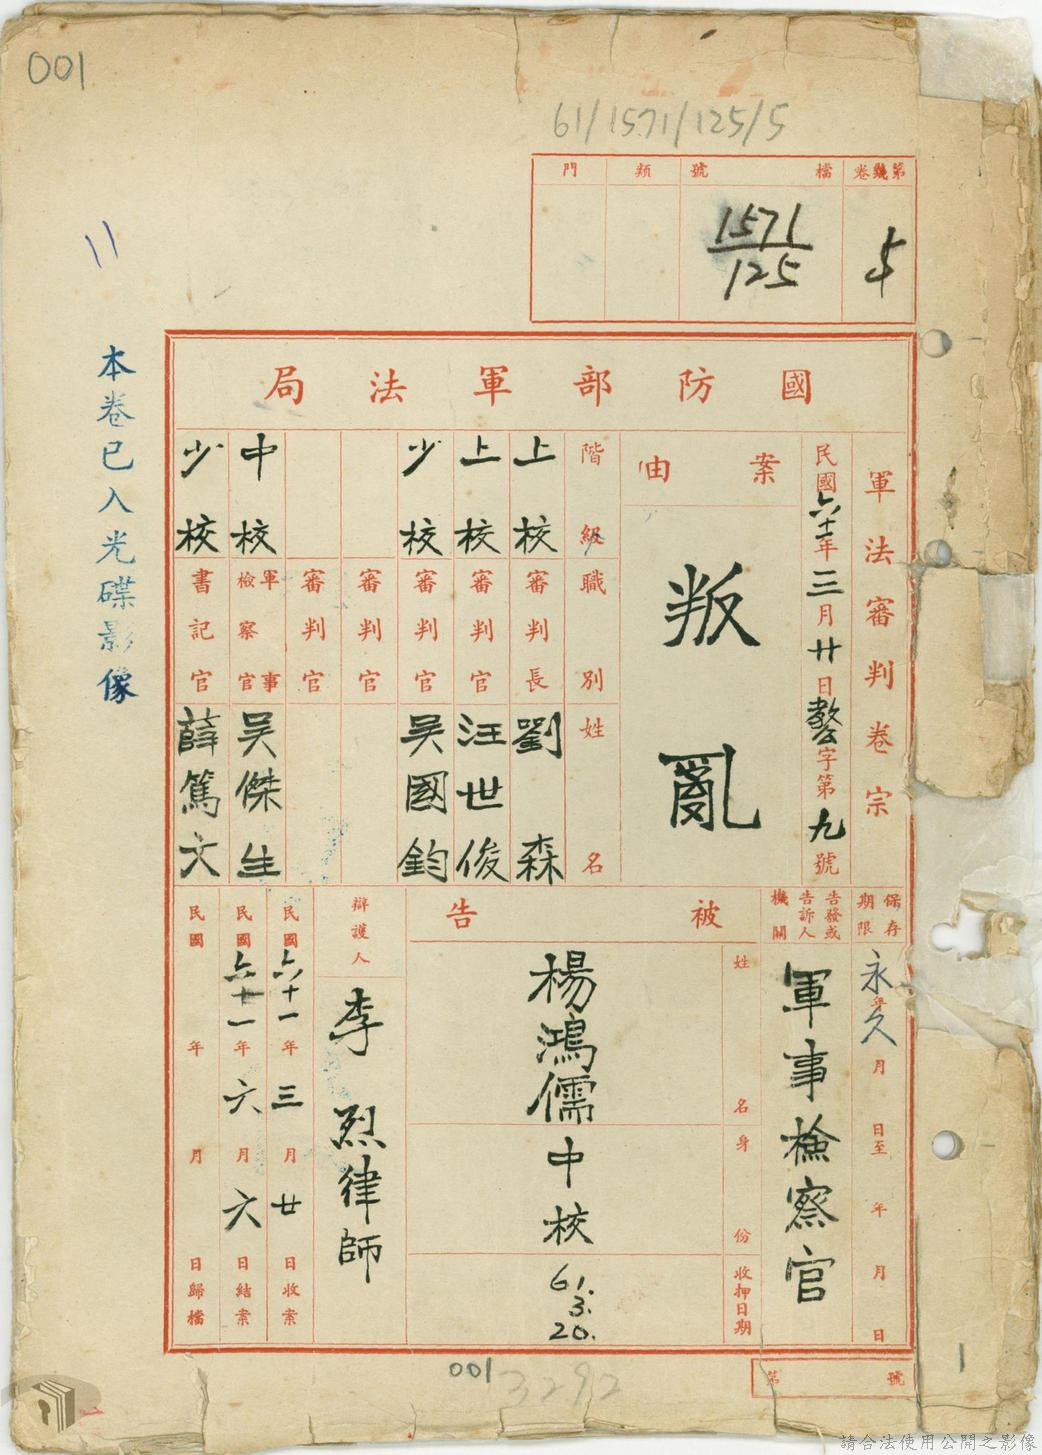 001
61/1571/125/5
第 號卷
5
檔 號
1571
125
類
門
國防部軍法局
軍法審判卷宗
民國六十年三月廿日 字第九號
案由
叛亂
階級 職別 姓名
上校 審判長 劉森
上校 審判官 汪世俊
少校 審判官 吳國鈞
審判官
審判官
中校 軍事檢察官 吳傑生
少校 書記官 薛篤文
保存期限
永久
年 月 日至 年 月 日
告發或告訴人機關
軍事檢察官
被告
姓名
楊鴻儒
身份
中校
收押日期
61.3.20.
辯護人
李烈律師
民國六十一年三月廿日收案
民國六十一年六月六日結案
民國 年 月 日歸檔
本卷已入光碟影像
第 號
001
3292
請合法使用公開之影像